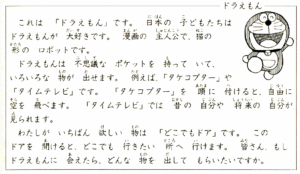 ドラえもん
これは 「ドラえもん」です。 日本の 子どもたちは
ドラえもんが 大好きです。 漫画の 主人公で、猫の
形の ロボットです。
ドラえもんは 不思議な ポケットを 持って いて、
いろいろな 物が 出せます。 例えば、「タケコプター」や
「タイムテレビ」です。 「タケコプター」を 頭に 付けると、自由に
空を 飛べます。 「タイムテレビ」では 昔の 自分や 将来の 自分が
見られます。
わたしが いちばん 欲しい 物は 「どこでもドア」です。 この
ドアを 開けると、どこでも 行きたい 所へ 行けます。 皆さん、もし
ドラえもんに 会えたら、どんな 物を 出して もらいたいですか。